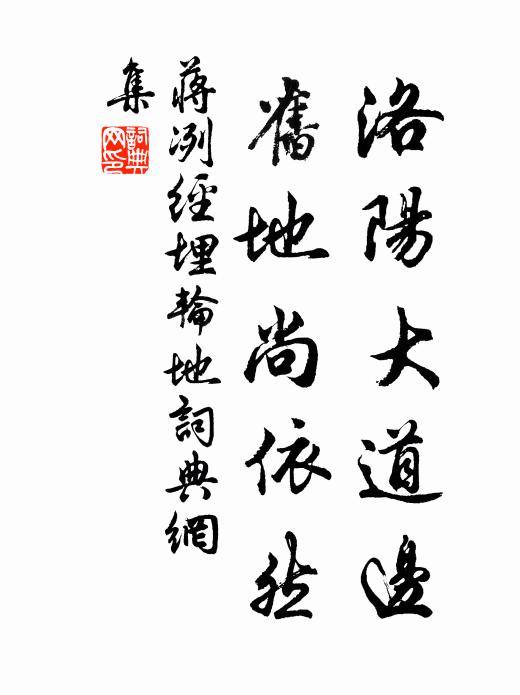 洛陽大道邊
舊地尚依然
蔣冽經埋輪地詞典網
集
詞典
网印